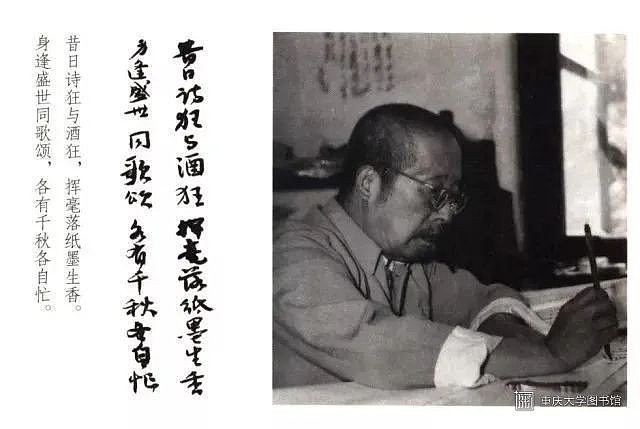 昔日诗狂与酒狂，挥毫落纸墨生香。
身逢盛世同歌颂，各有千秋各自忙。
昔日诗狂与酒狂 挥毫落纸墨生香
身逢盛世 同歌颂 各有千秋各自忙
重庆大学图书馆